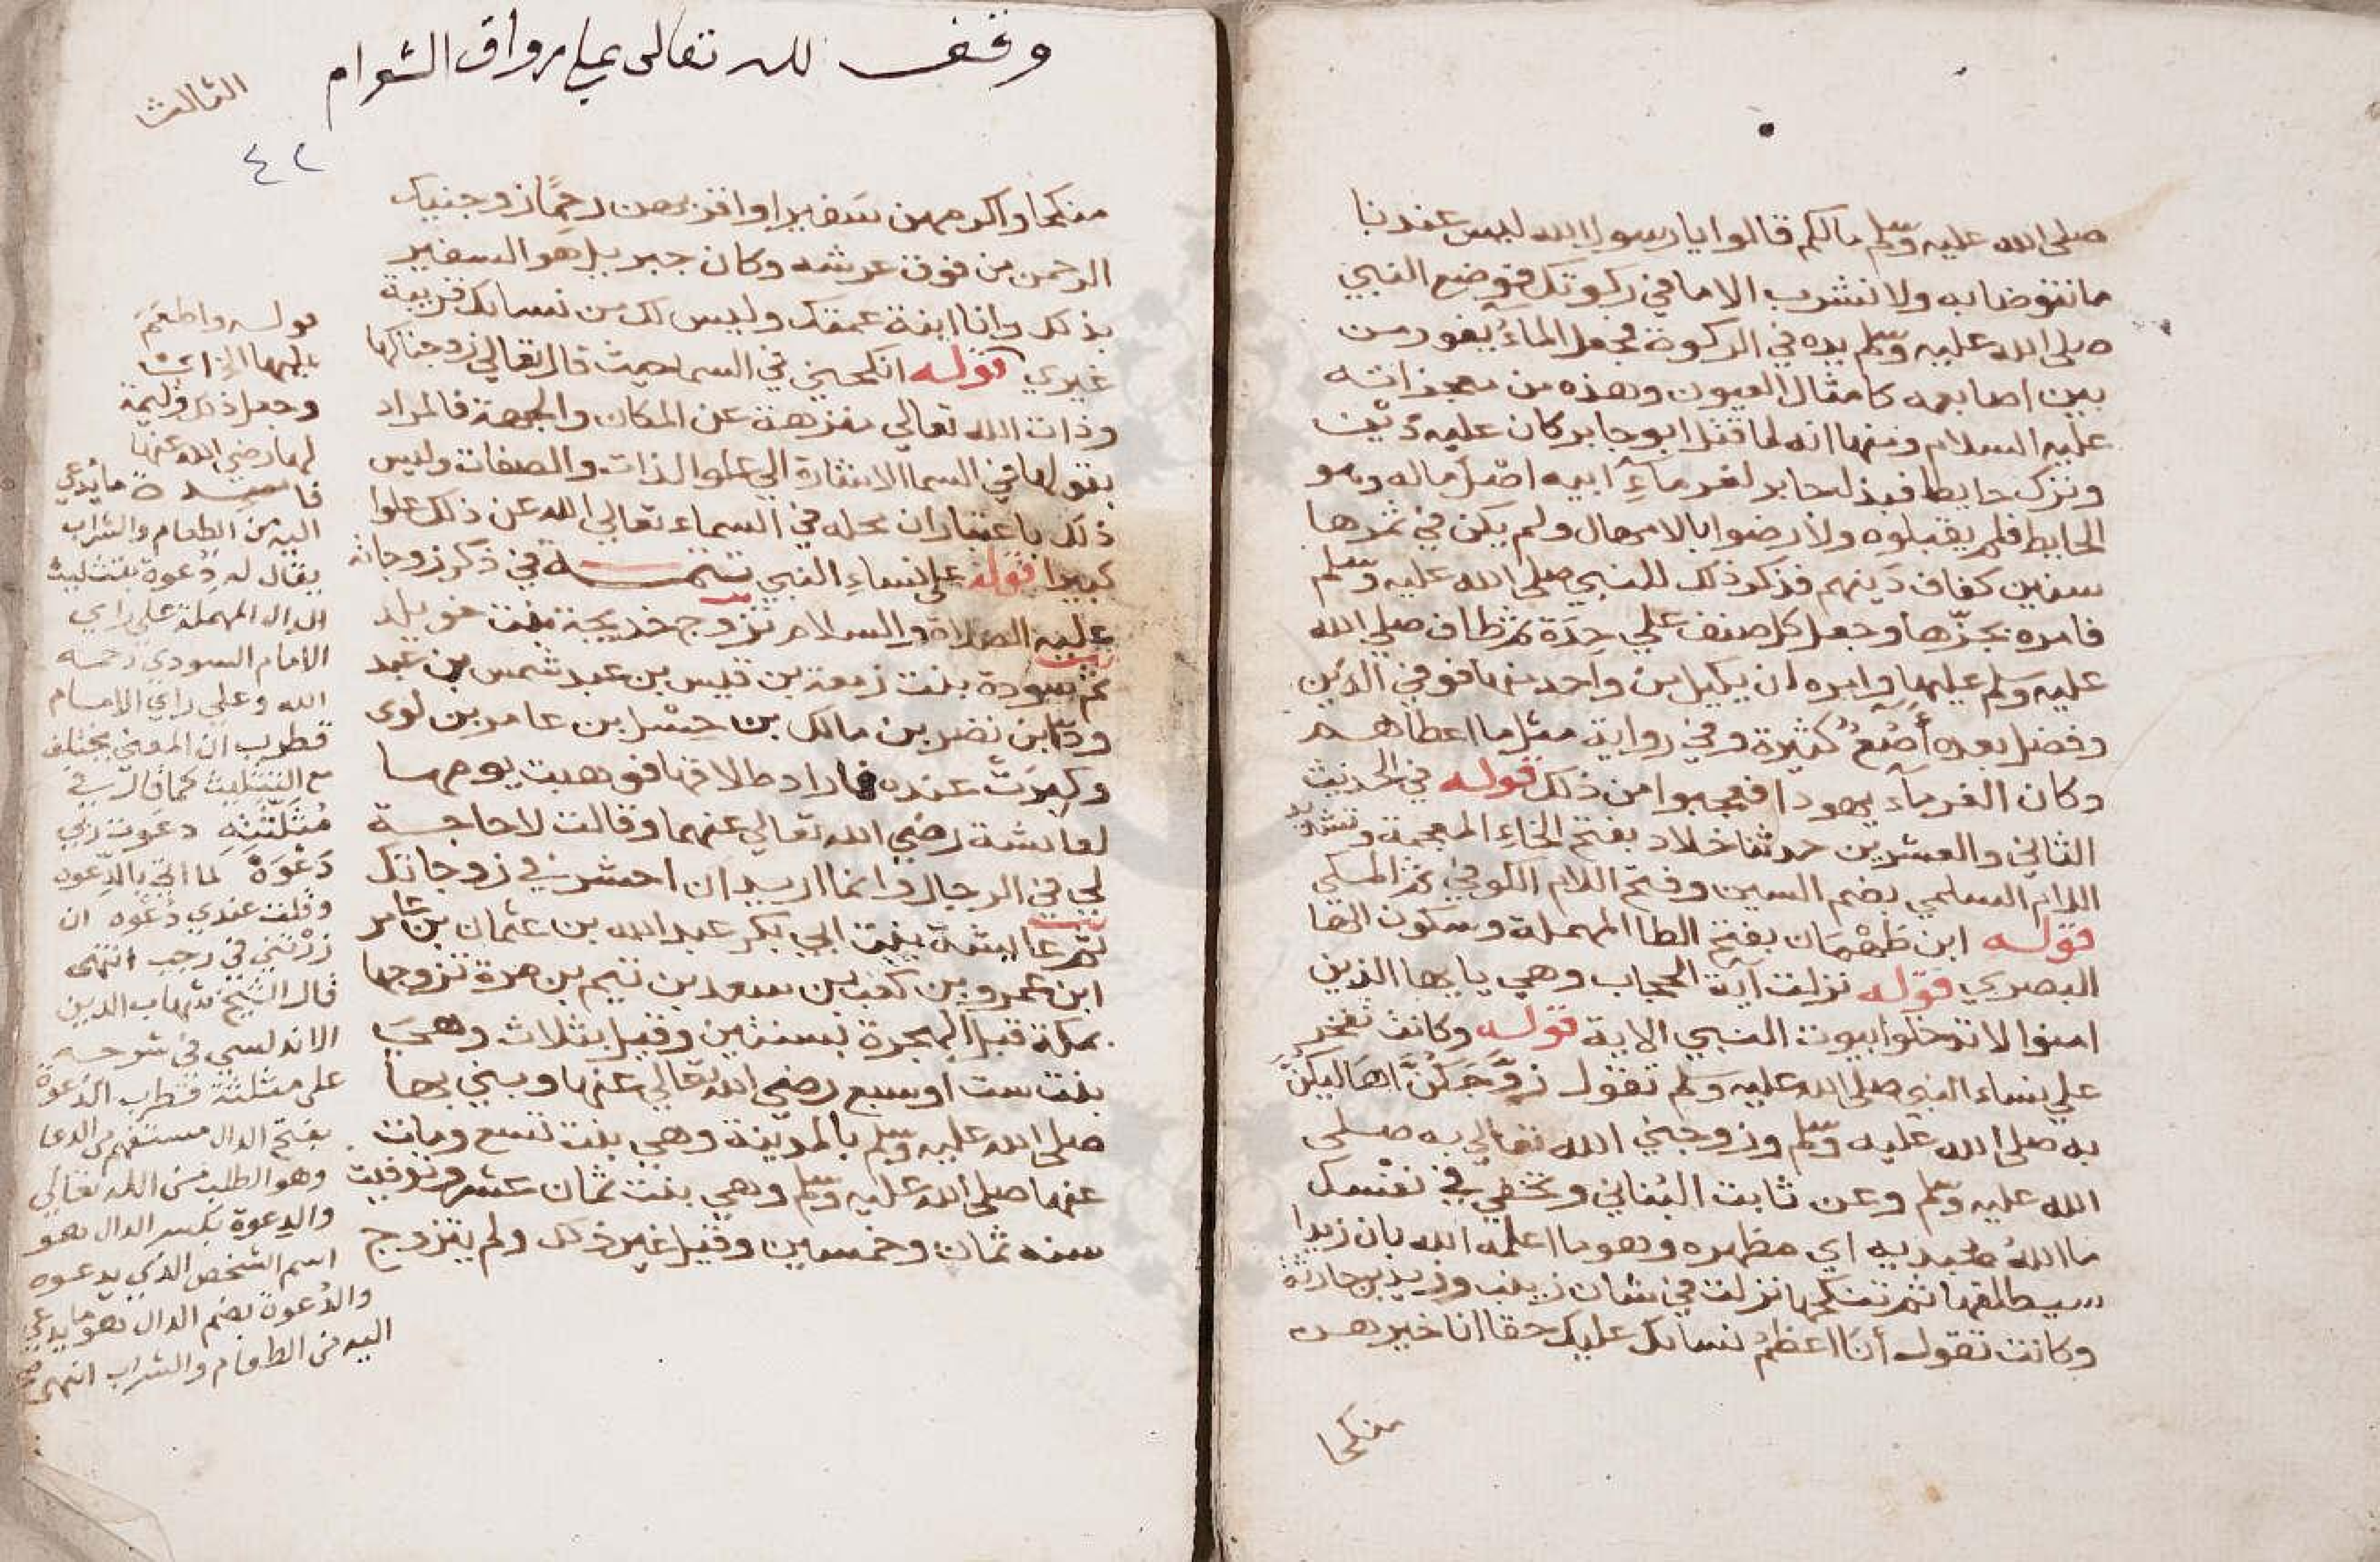 صلى الله عليه وسلم مالكم قالوا يا رسول الله ليس عندنا
ما نتوضا به ولا نشرب الا ما في ركوتك فوضع النبي
صلى الله عليه وسلم يده في الركوة فجعل الماء يفور من
بين اصابعه كامثال العيون وهذه من معجزاته
عليه السلام ومنها انه لما قتل ابو جابر كان عليه دين
وترك حايطا فبذل جابر لغرماء ابيه اصل ماله وهو
الحايط فلم يقبلوه ولا رضوا بالامهال ولم يكن في ثمرها
سنين كفاف دينهم فذكر ذلك للنبي صلى الله عليه وسلم
فامره بجزها وجعل كل صنف علي حدة ثم طاف صلي الله
عليه وسلم عليها وامره ان يكيل من واحد منها فوفي الدين
وفضل بعده أصع كثيرة وفي رواية مثل ما اعطاهم
وكان الغرماء يهودا فعجبوا من ذلك قوله في الحديث
الثاني والعشرين حدثنا خلاد بفتح الخاء المعجمة وتشديد
اللام السلمي بضم السين وفتح اللام الكوفي ثم المكي
قوله ابن طهمان بفتح الطا المهملة وسكون الها
البصري قوله نزلت آية الحجاب وهي يا يها الذين
امنوا لا تدخلوا بيوت النبي الاية قوله وكانت تفخر
علي نساء النبي صلى الله عليه وسلم تقول زوجكن اهاليكن
به صلى الله عليه وسلم وزوجني الله تعالي به صلى
الله عليه وسلم وعن ثابت البناني وتخفي في نفسك
ما الله مبديه اي مظهره وهو ما اعلمه الله بان زيدا
سيطلقها ثم تنكحها نزلت في شان زينب وزيد بن حارثة
وكانت تقول أنا اعظم نسائك عليك حقا انا خيرهن
منكحا
وقف لله تعالى على رواق الشوام
الثالث
٤٢
منكحا واكرمهن سفيرا واقربهن رحما زوجنيك
الرحمن من فوق عرشه وكان جبريل هو السفير
بذلك وانا ابنة عمتك وليس لك من نسائك قريبة
غيري قوله انكحني في السما حيث قال تعالي زوجناكها
وذات الله تعالي منزهة عن المكان والجهة فالمراد
بقولها في السما الاشارة الي علو الذات والصفات وليس
ذلك باعتبار ان محله في السماء تعالي الله عن ذلك علوا
كبيرا قوله علي نساء النبي تتمة في ذكر زوجاته
عليه الصلاة والسلام تزوج خديجة بنت خويلد
ثم سودة بنت زمعة بن قيس بن عبد شمس بن عبد
ود بن نضر بن مالك بن حسل بن عامر بن لوى
وكبرت عنده فاراد طلاقها فوهبت يومها
لعائشة رضي الله تعالي عنهما وقالت لا حاجة
لي في الرجال وانما اريد ان احشر في زوجاتك
ثم عائشة بنت ابي بكر عبد الله بن عثمان بن عامر
ابن عمرو بن كعب بن سعد بن تيم بن مرة تزوجها
بمكة قبل الهجرة بسنتين وقيل بثلاث وهي
بنت ست او سبع رضي الله تعالي عنها وبني بها
صلى الله عليه وسلم بالمدينة وهي بنت تسع ومات
عنها صلى الله عليه وسلم وهي بنت ثمان عشر وتوفيت
سنه ثمان وخمسين وقيل غير ذلك ولم يتزوج
قوله واطعم
عليها الخ اي
وجعل ذلك وليمة
لها رضي الله عنها
فائدة ما يدعي
اليه من الطعام والشراب
يقال له دعوة بتثليث
الدال المهملة على راي
الامام السودي رحمه
الله وعلي راي الامام
قطرب ان المعني يختلف
مع التثليث كما قال في
مثلثته دعوت ربي
دعوة لما اتي بالدعوه
وقلت عندي دعوه ان
زرتني في رجب انتهى
قال الشيخ شهاب الدين
الاندلسي في شرحه
على مثلثة قطرب الدعوة
بفتح الدال الدعا
وهو الطلب من الله تعالي
والدعوة بكسر الدال هو
اسم الشخص الذي يدعوه
والدعوة بضم الدال هو ما يدعي
اليه من الطعام والشراب انتهى